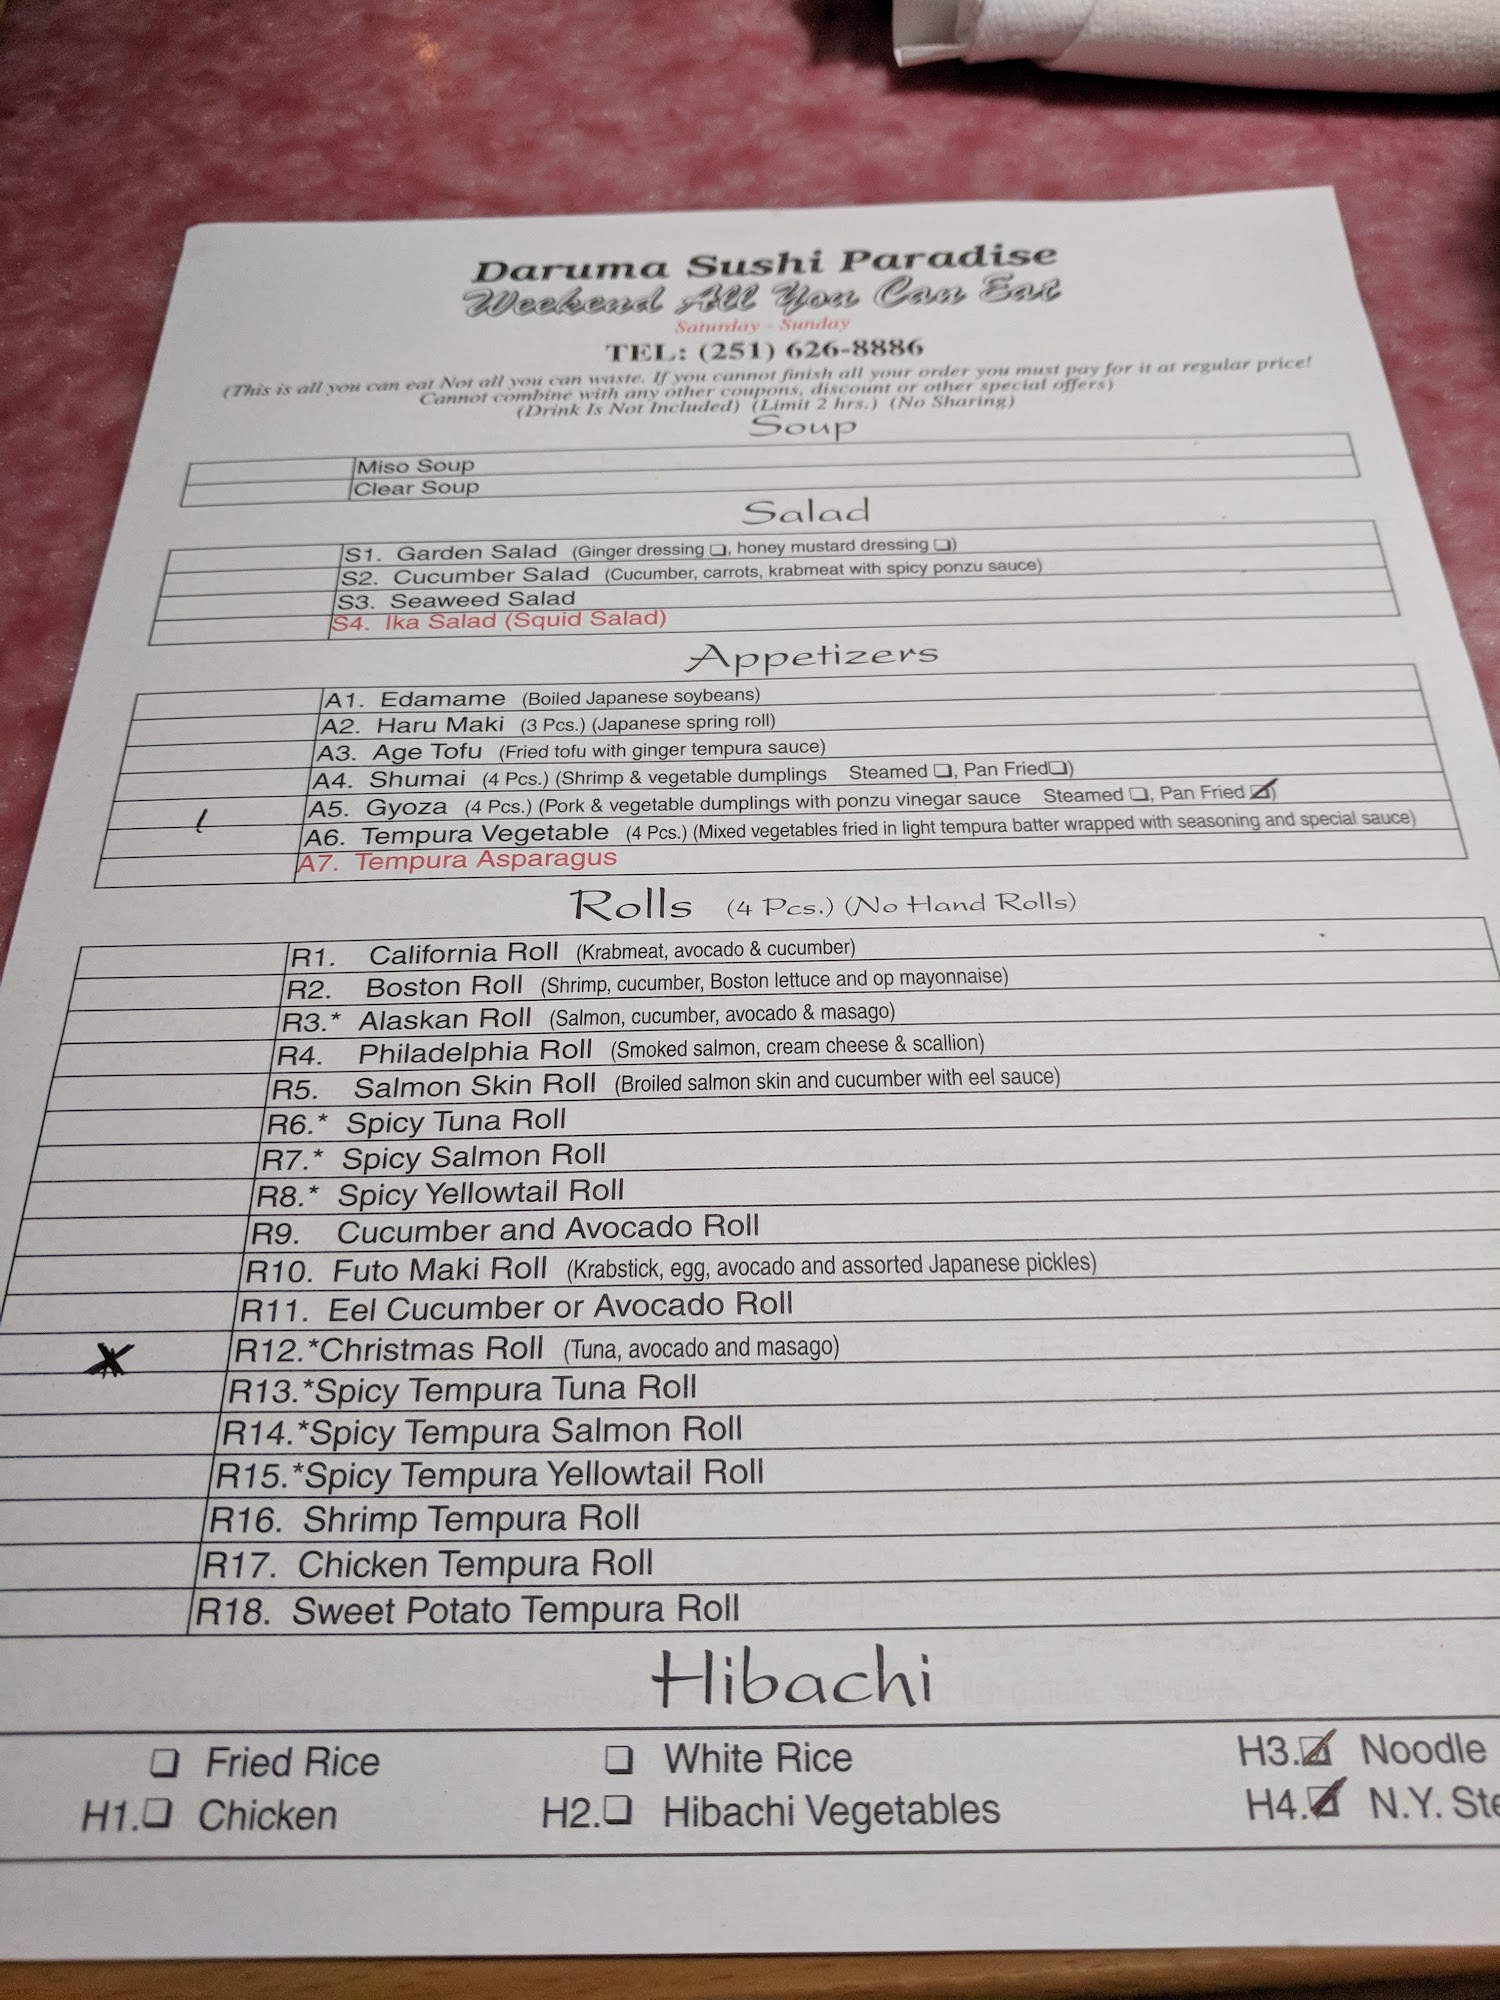 Daruma Sushi Paradise
Weekend All You Can Eat
Saturday - Sunday
TEL: (251) 626-8886
(This is all you can eat Not all you can waste. If you cannot finish all your order you must pay for it at regular price!
Cannot combine with any other coupons, discount or other special offers)
(Drink Is Not Included) (Limit 2 hrs.) (No Sharing)
Soup
Miso Soup
Clear Soup
Salad
S1. Garden Salad (Ginger dressing ❏, honey mustard dressing ❏)
S2. Cucumber Salad (Cucumber, carrots, krabmeat with spicy ponzu sauce)
S3. Seaweed Salad
S4. Ika Salad (Squid Salad)
Appetizers
A1. Edamame (Boiled Japanese soybeans)
A2. Haru Maki (3 Pcs.) (Japanese spring roll)
A3. Age Tofu (Fried tofu with ginger tempura sauce)
A4. Shumai (4 Pcs.) (Shrimp & vegetable dumplings Steamed ❏, Pan Fried❏)
1 A5. Gyoza (4 Pcs.) (Pork & vegetable dumplings with ponzu vinegar sauce Steamed ❏, Pan Fried ☑)
A6. Tempura Vegetable (4 Pcs.) (Mixed vegetables fried in light tempura batter wrapped with seasoning and special sauce)
A7. Tempura Asparagus
Rolls (4 Pcs.) (No Hand Rolls)
R1. California Roll (Krabmeat, avocado & cucumber)
R2. Boston Roll (Shrimp, cucumber, Boston lettuce and op mayonnaise)
R3.* Alaskan Roll (Salmon, cucumber, avocado & masago)
R4. Philadelphia Roll (Smoked salmon, cream cheese & scallion)
R5. Salmon Skin Roll (Broiled salmon skin and cucumber with eel sauce)
R6.* Spicy Tuna Roll
R7.* Spicy Salmon Roll
R8.* Spicy Yellowtail Roll
R9. Cucumber and Avocado Roll
R10. Futo Maki Roll (Krabstick, egg, avocado and assorted Japanese pickles)
R11. Eel Cucumber or Avocado Roll
R12.*Christmas Roll (Tuna, avocado and masago)
R13.*Spicy Tempura Tuna Roll
R14.*Spicy Tempura Salmon Roll
R15.*Spicy Tempura Yellowtail Roll
R16. Shrimp Tempura Roll
R17. Chicken Tempura Roll
R18. Sweet Potato Tempura Roll
Hibachi
❏ Fried Rice ❏ White Rice H3.☑ Noodle
H1.❏ Chicken H2.❏ Hibachi Vegetables H4.☑ N.Y. Ste